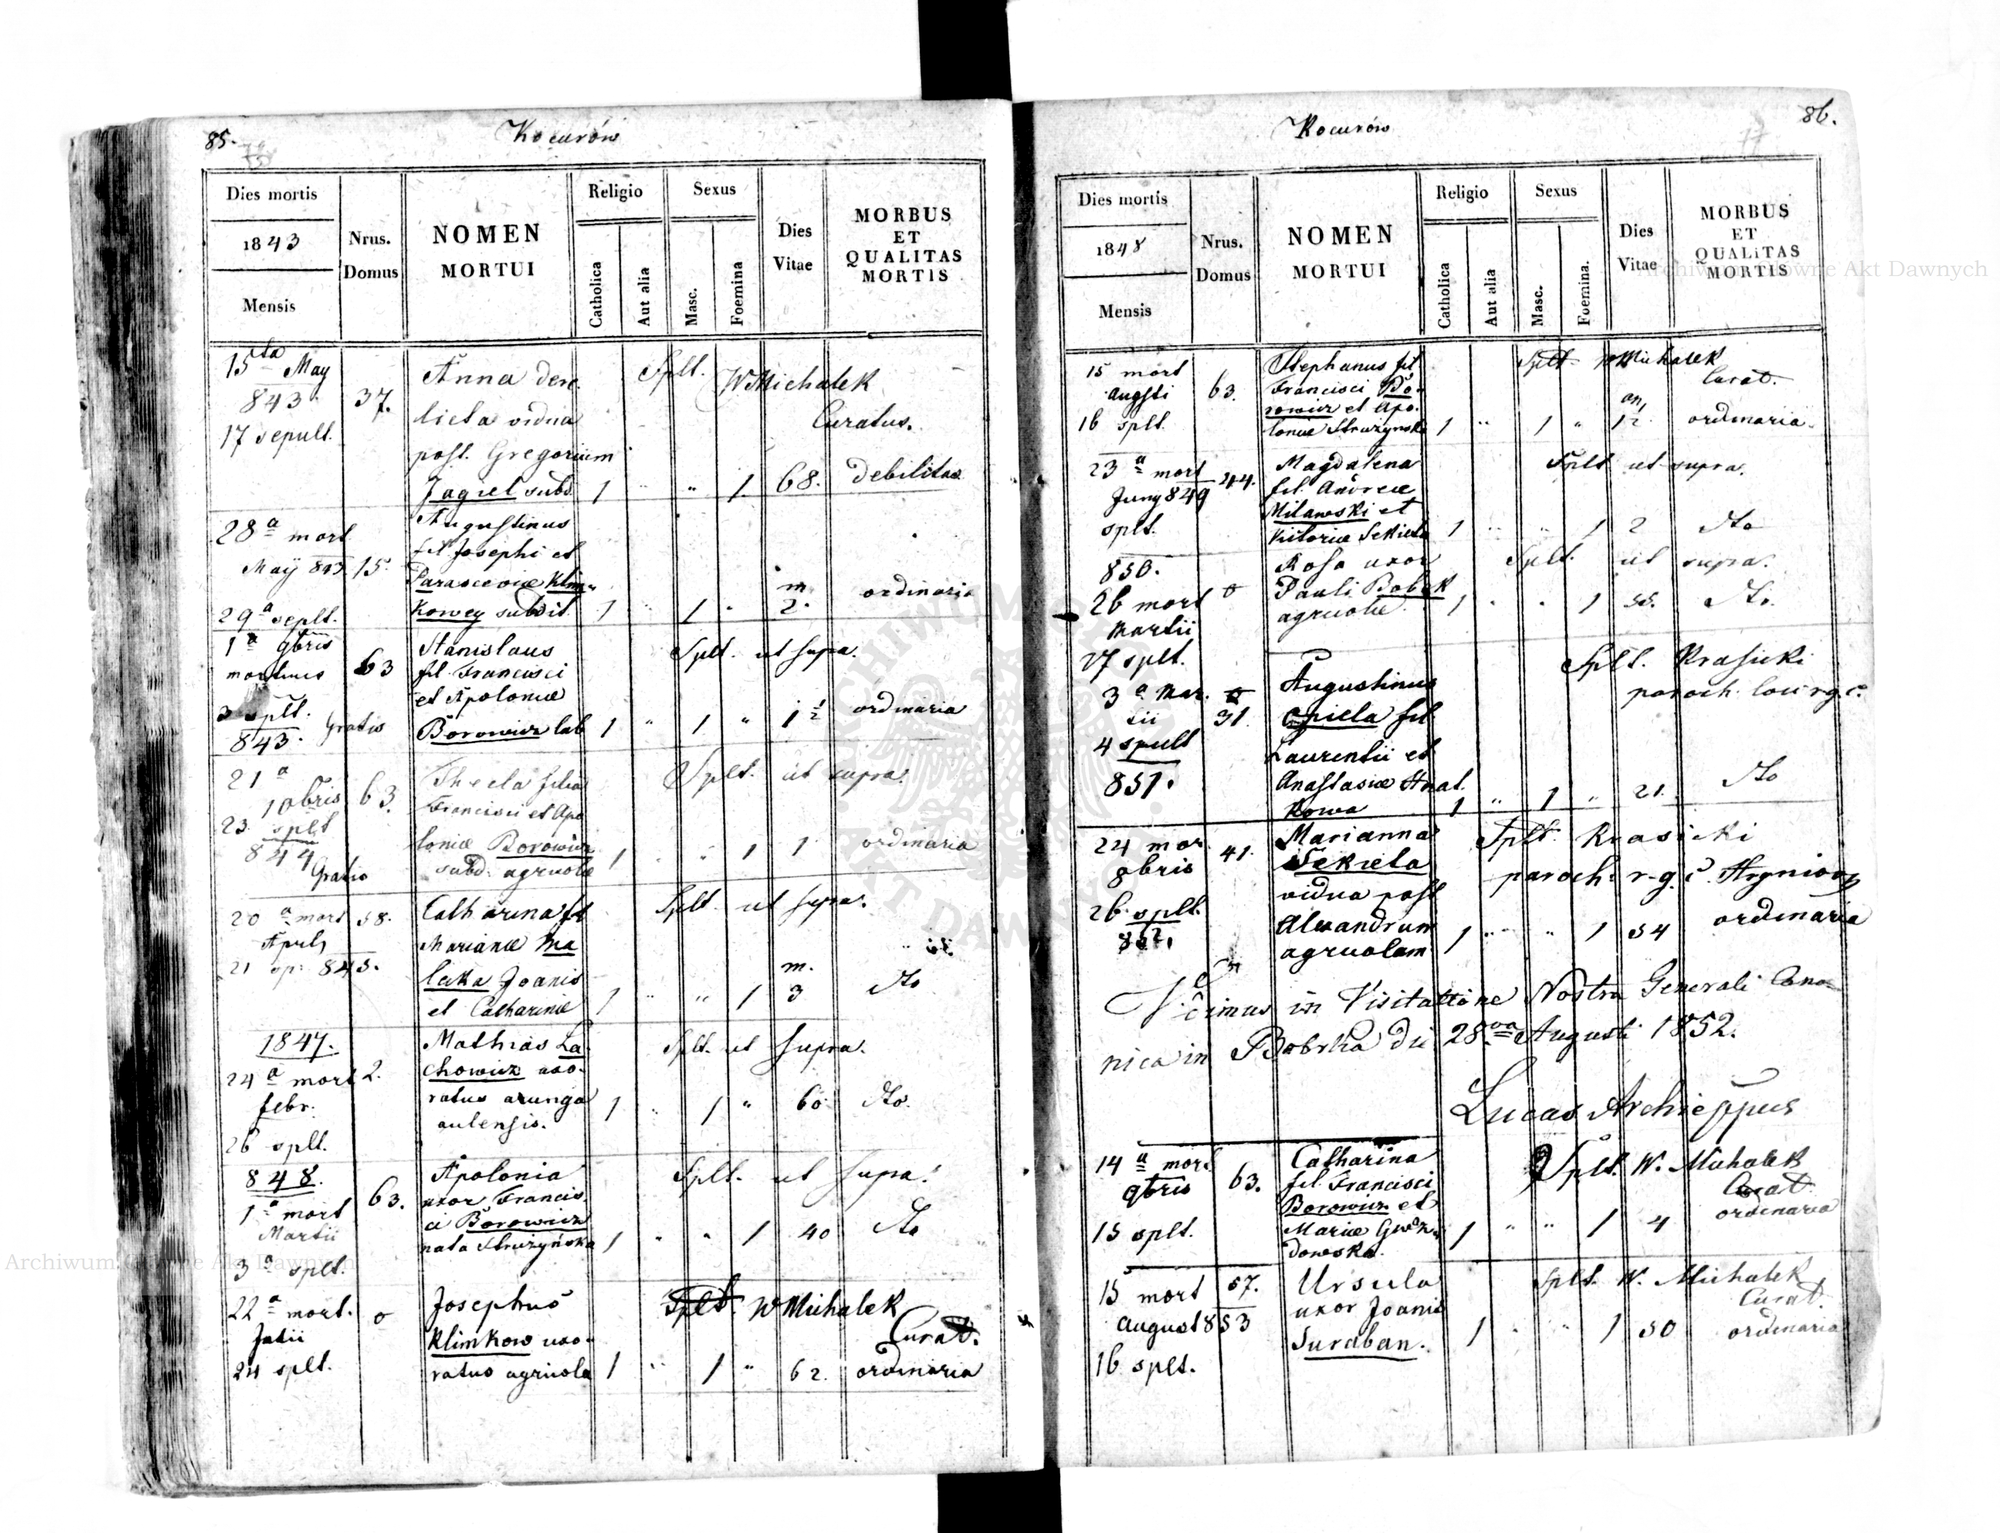 85.
Kocurów
Dies mortis
1843
Mensis
Nrus.
Domus
NOMEN
MORTUI
Religio
Catholica
Aut alia
Sexus
Masc.
Foemina
Dies
Vitae
MORBUS
ET
QUALITAS
MORTIS
15ta May
843
17 sepult.
37.
Anna dere
licta vidua
post Gregorium
Jagiel subd.
Splt. W Michalek
Curatus.
1 " " 1. 68. debilitas
28a mort
Maÿ 843
29a seplt.
15.
Augustinus
fil Josephi et
Parasceviae Klim-
kowey subdit
1 " 1 " m 2. ordinaria
1a 9bris
mortuus
3 splt.
843. Gratis
63
Stanislaus
fil. Francisci
et Apoloniae
Borowicz lab
Splt. ut supra.
1 " 1 " 1 1/2 ordinaria
21a
10bris
23 splt
844
Gratis
63.
Thecla filia
Francisci et Apo
loniae Borowicz
subd. agricolae
Splt. ut supra.
1 " " 1 1 ordinaria
20a mort
April,
21 sp. 845.
58.
Catharina fil
Marianae Ma
lecka Joanis
et Catharinae
Splt. ut supra.
1 " " 1 m. 3 dto
1847.
24a mort
febr.
26 splt.
2.
Mathias La
chowicz uxo-
ratus
aulensis.
Splt. ut supra.
1 " 1 " 60 dto.
848.
1a mort
Martii
3a splt.
63.
Apolonia
uxor Francis
ci Borowicz
nata Strużyńska
Splt. ut supra.
1 " " 1 40 dto
22a mort.
24 splt.
0
Josephus
Klimkow uxo-
ratus agricola
Splt. W Michalek
Curat.
1 " 1 " 62. ordinaria
86.
77
Kocurów
Dies mortis
1848
Mensis
Nrus.
Domus
NOMEN
MORTUI
Religio
Catholica
Aut alia
Sexus
Masc.
Foemina.
Dies
Vitae
MORBUS
ET
QUALITAS
MORTIS
15 mort
Augsti
16 splt.
63.
Stephanus fil
Francisci Bo-
rowicz et Apo-
loniae Strużynska
Splt W Michalek
Curat.
1 " 1 " an, 12. ordinaria.
23a mort
Juny 849
splt.
44.
Magdalena
fil. Andreae
Milanoski et
Victoriae Sekiela
Splt ut supra.
1 " " 1 2 dto
850.
26 mort
Martii
27 splt.
0
Rosa uxor
Pauli Bobek
agricolae.
Splt. ut supra.
1 " " 1 55. dto.
3a Mar.
tii
4 spult
851.
31.
Augustinus
Opiela fil
Laurentii et
Anastasiae Hnat
kowa
Splt. Krasicki
paroch. loci r. g. c.
1 " 1 " 21. dto
24 mor
8bris
26 splt.
852.
41.
Marianna
Sekiela
vidua post
Alexandrum
agricolam
Splt. Krasicki
paroch. r. g. c.
1 " " 1 54 ordinaria
in Visitatione Nostra Generali Cano-
nica in Bobrka die 28va Augusti 1852.
Lucas Archieppus
14a mort
9bris
15 splt.
63.
Catharina
fil. Francisci
Borowicz et
Mariae Gwoz-
dowska.
Splt. W. Michalek
Curat.
1 " " 1 4 ordinaria
15 mort
August 853
16 splt.
57.
Ursula
uxor Joanis
Suraban.
Splt. W. Michalek
Curat.
1 " " 1 50 ordinaria
Archiwum Główne Akt Dawnych
Archiwum Główne Akt Dawnych
ARCHIWUM GŁÓWNE AKT DAWNYCH